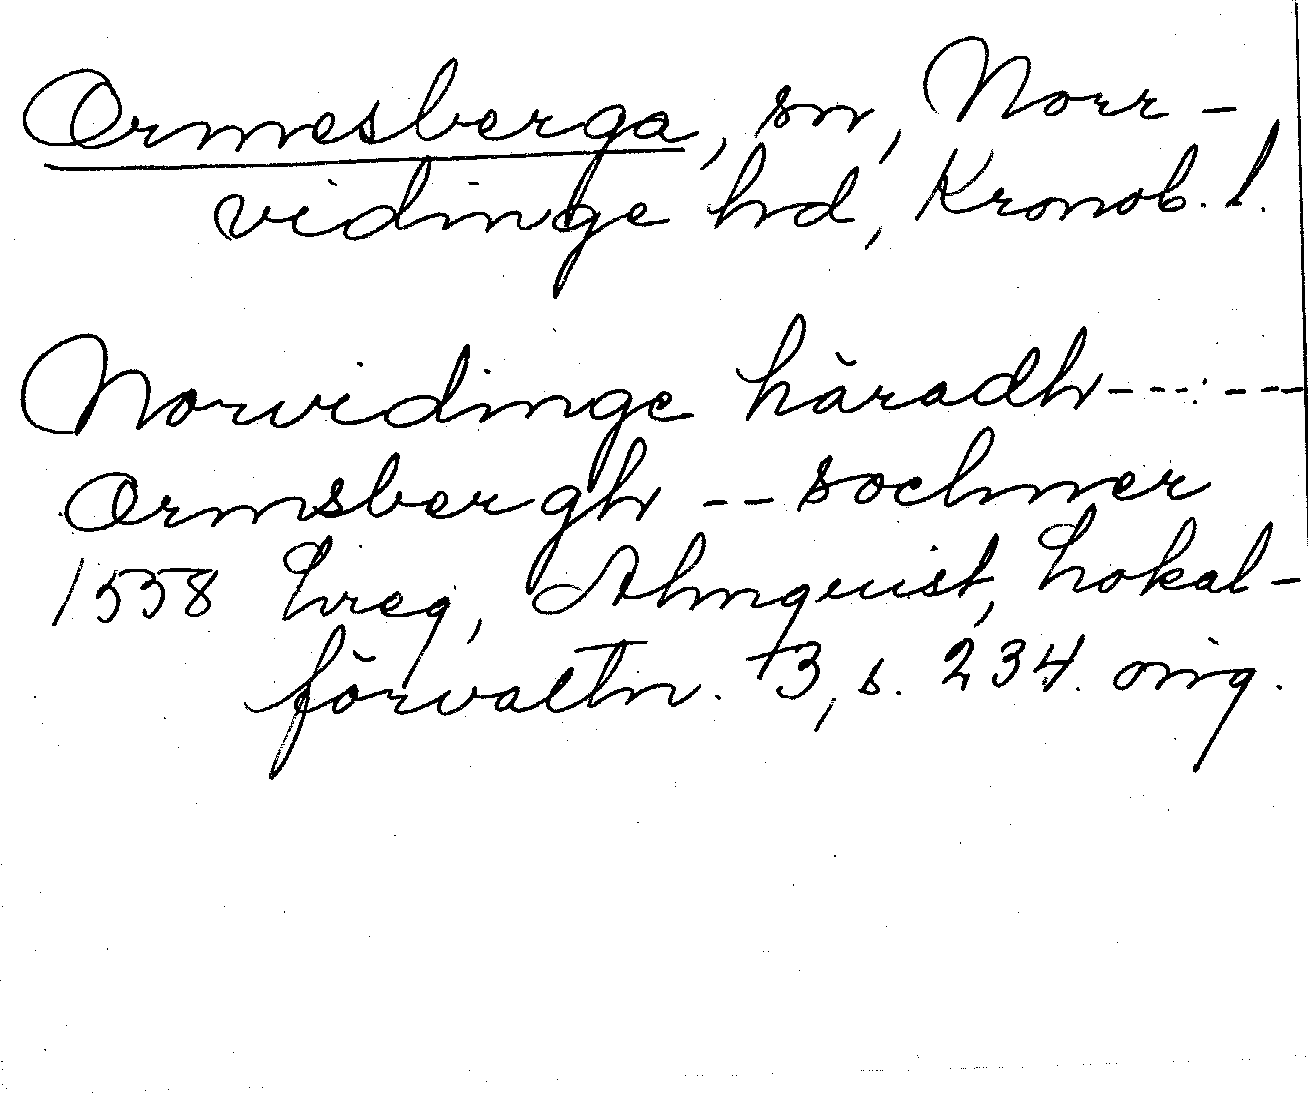 Ormesberga, sn, Norr-
vidinge hd, Kronob. l.
Norvidinge häradh---:---
Ormsbergh -- sochner
1538 hreg, Almquist, Lokal-
förvaltn. 3, s. 234. orig.